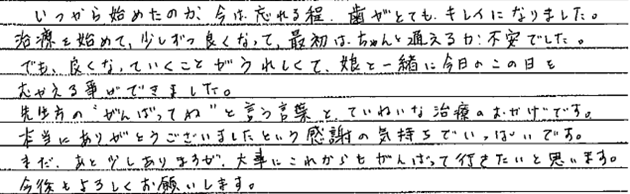 いつから始めたのか、今は忘れる程、歯がとてもキレイになりました。
治療を始めて、少しずつ良くなって、最初はちゃんと通えるか不安でした。
でも、良くなっていくことがうれしくて、娘と一緒に今日のこの日を
むかえる事ができました。
先生方の“がんばってね”と言う言葉と、ていねいな治療のおかげです。
本当にありがとうございましたという感謝の気持ちでいっぱいです。
まだ、あと少しありますが、大事にこれからもがんばって行きたいと思います。
今後もよろしくお願いします。